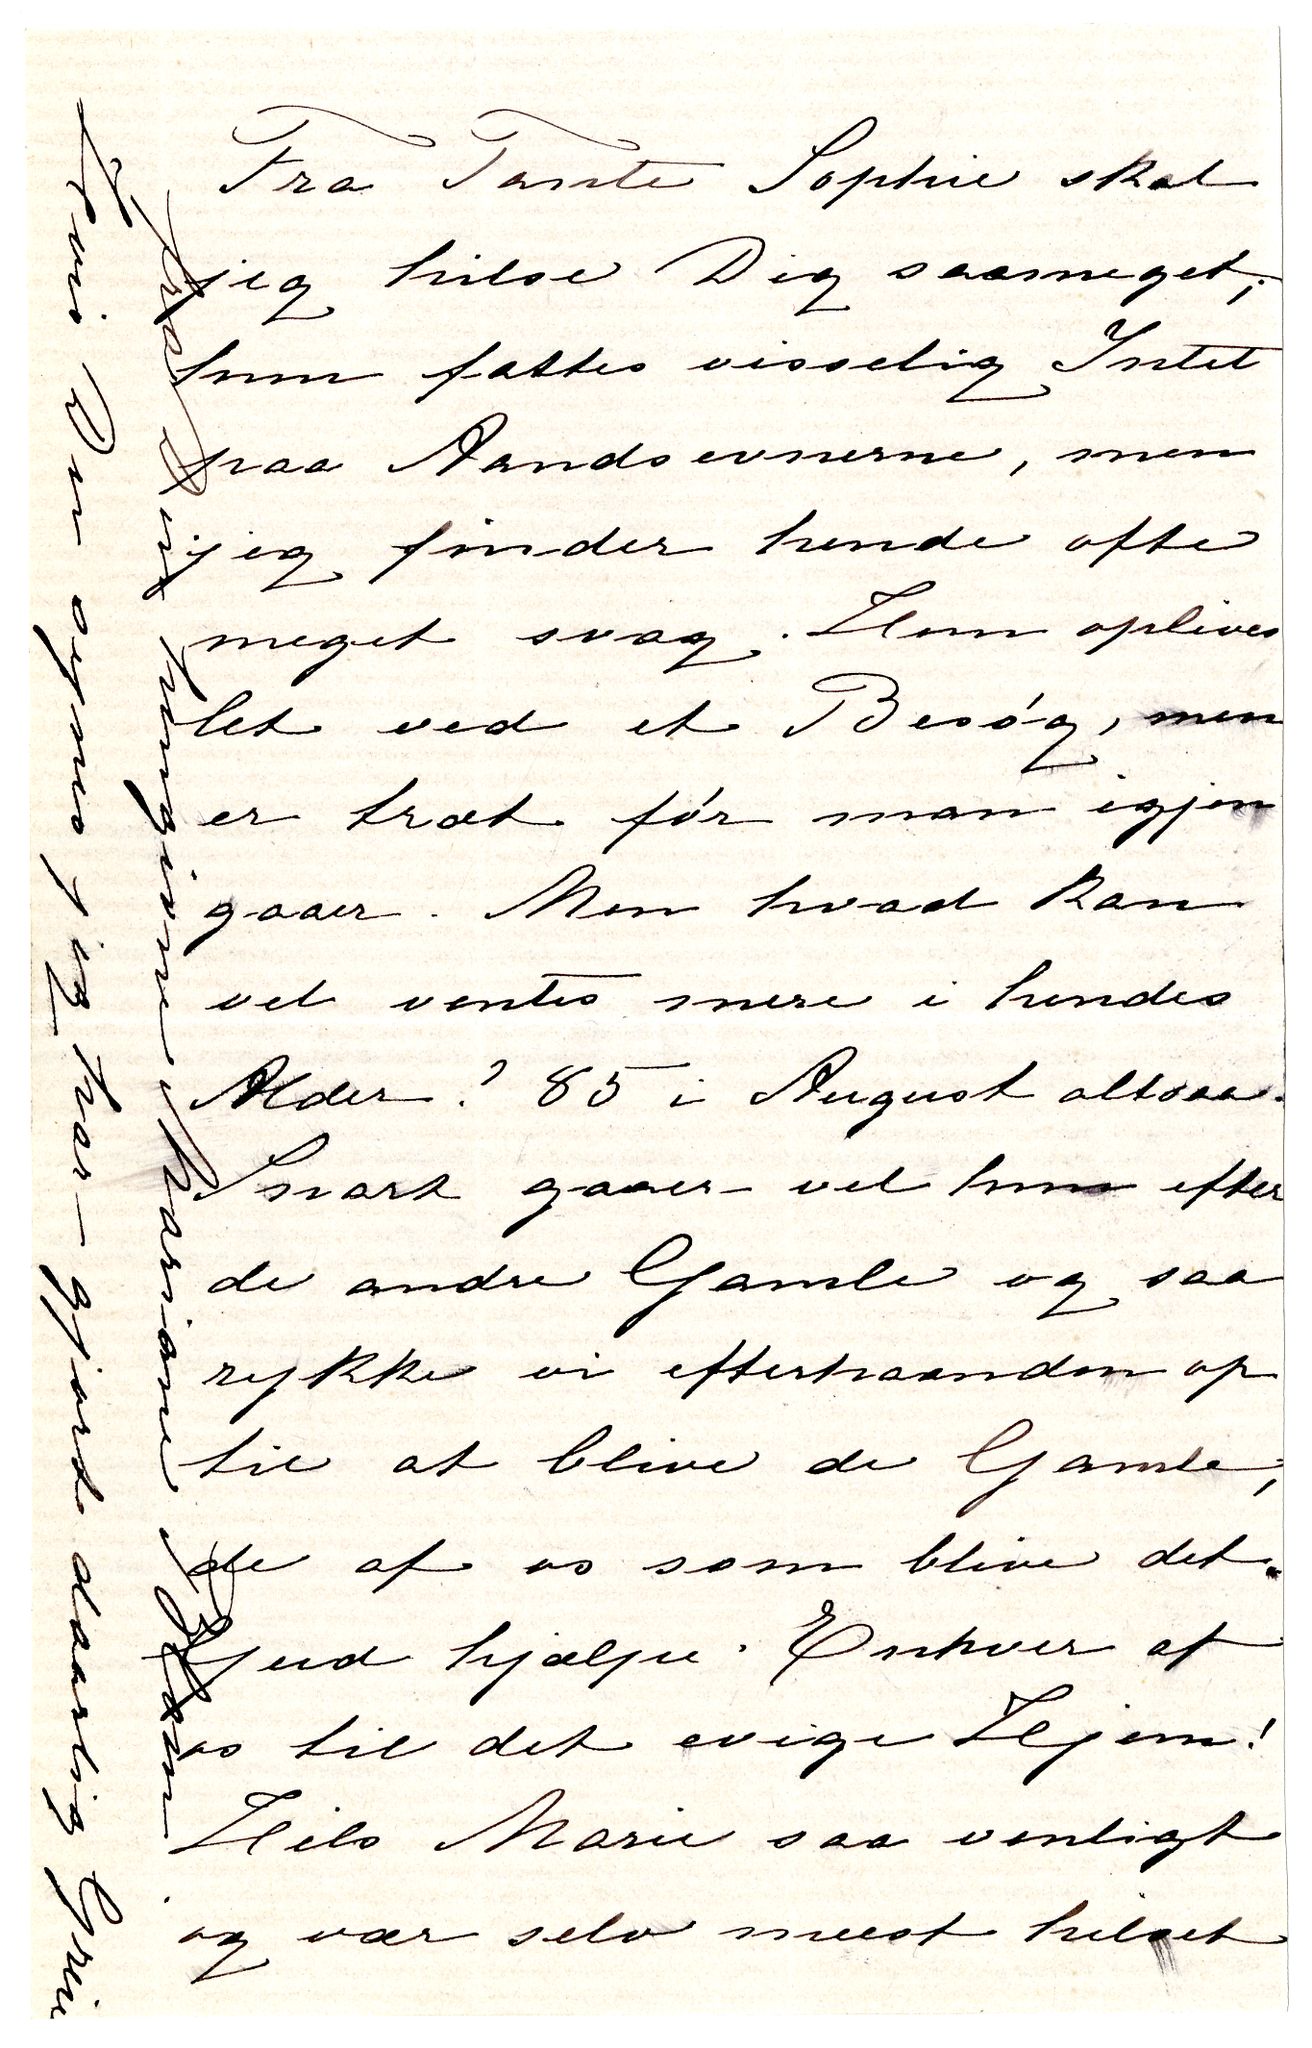 Fra Tante Sophie skal
jeg hilse Dig saameget;
hun fattes visselig Intet
paa Aandsevnerne, men
jeg finder hende ofte
meget svag. Hun oplives
let ved et Besøg, men
er træt før man igjen
gaaer. Men hvad kan
vel ventes mere i hendes
Alder? 85 i August altsaa.
Snart gaaer vel hun efter
de andre Gamle og saa
rykke vi efterhaanden op
til at blive de Gamle,
de af os som blive det.
Gud hjælpe Enhver af
os til det evige Hjem!
Hils Marie saa venligt
og vær selv meest hilset
fra Din hengivne Mariane
Din synes jeg har gjort daarlig